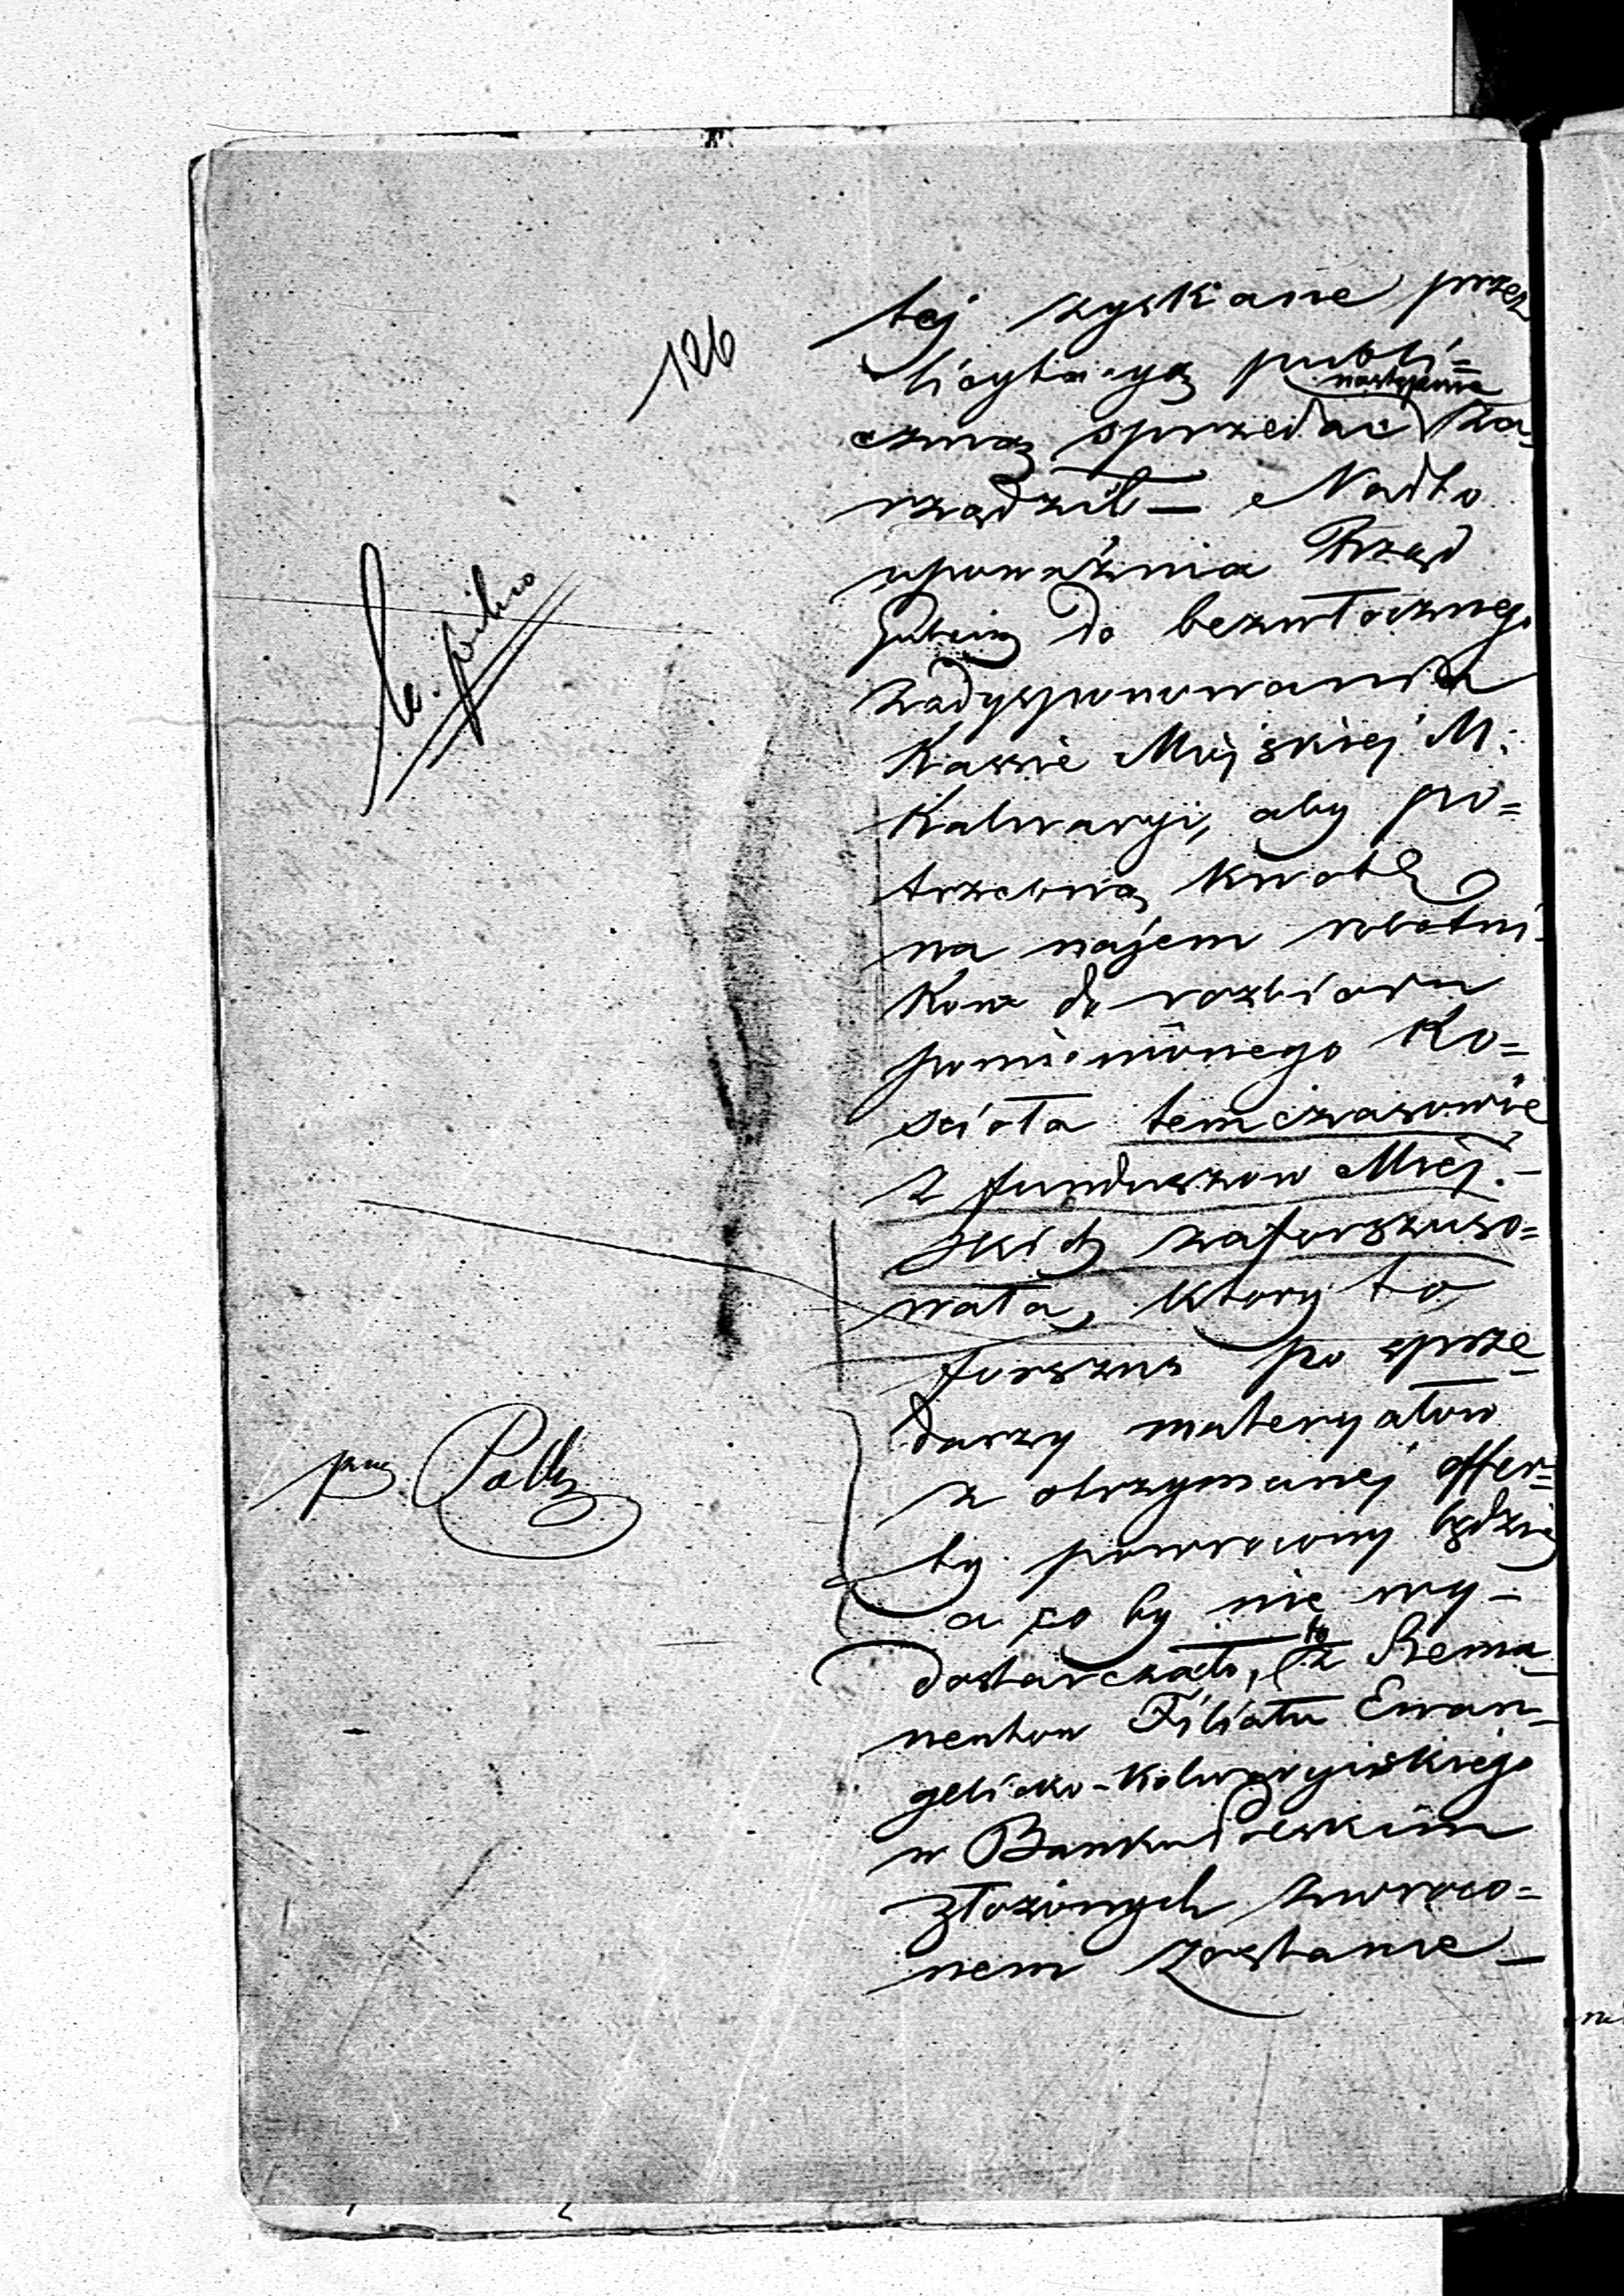 126
tej zyskane przez
licytacyą publi=
następnie
czną sprzedać za-
rządził — Nadto
upoważnia Rząd
Gubern do bezwłocznego
zadysponowania
Kassie Miejskiej M:
Kalwaryi, aby po=
trzebną kwotę
na najem robotni-
kow do rozbioru
pomienionego Ko=
scioła temczasowie
z funduszow Miej-
skich zaforszuso=
wała, ktory to
forszus po sprze-
darzy materyałow
z otrzymanej offer=
ty powrocony będzie
a co by nie wy-
dostarczało, to z Rema-
nentow Filiału Ewan-
gelicko-Kalwaryiskiego
w Banku Polskim
złożonych zwroco=
nem zostanie —